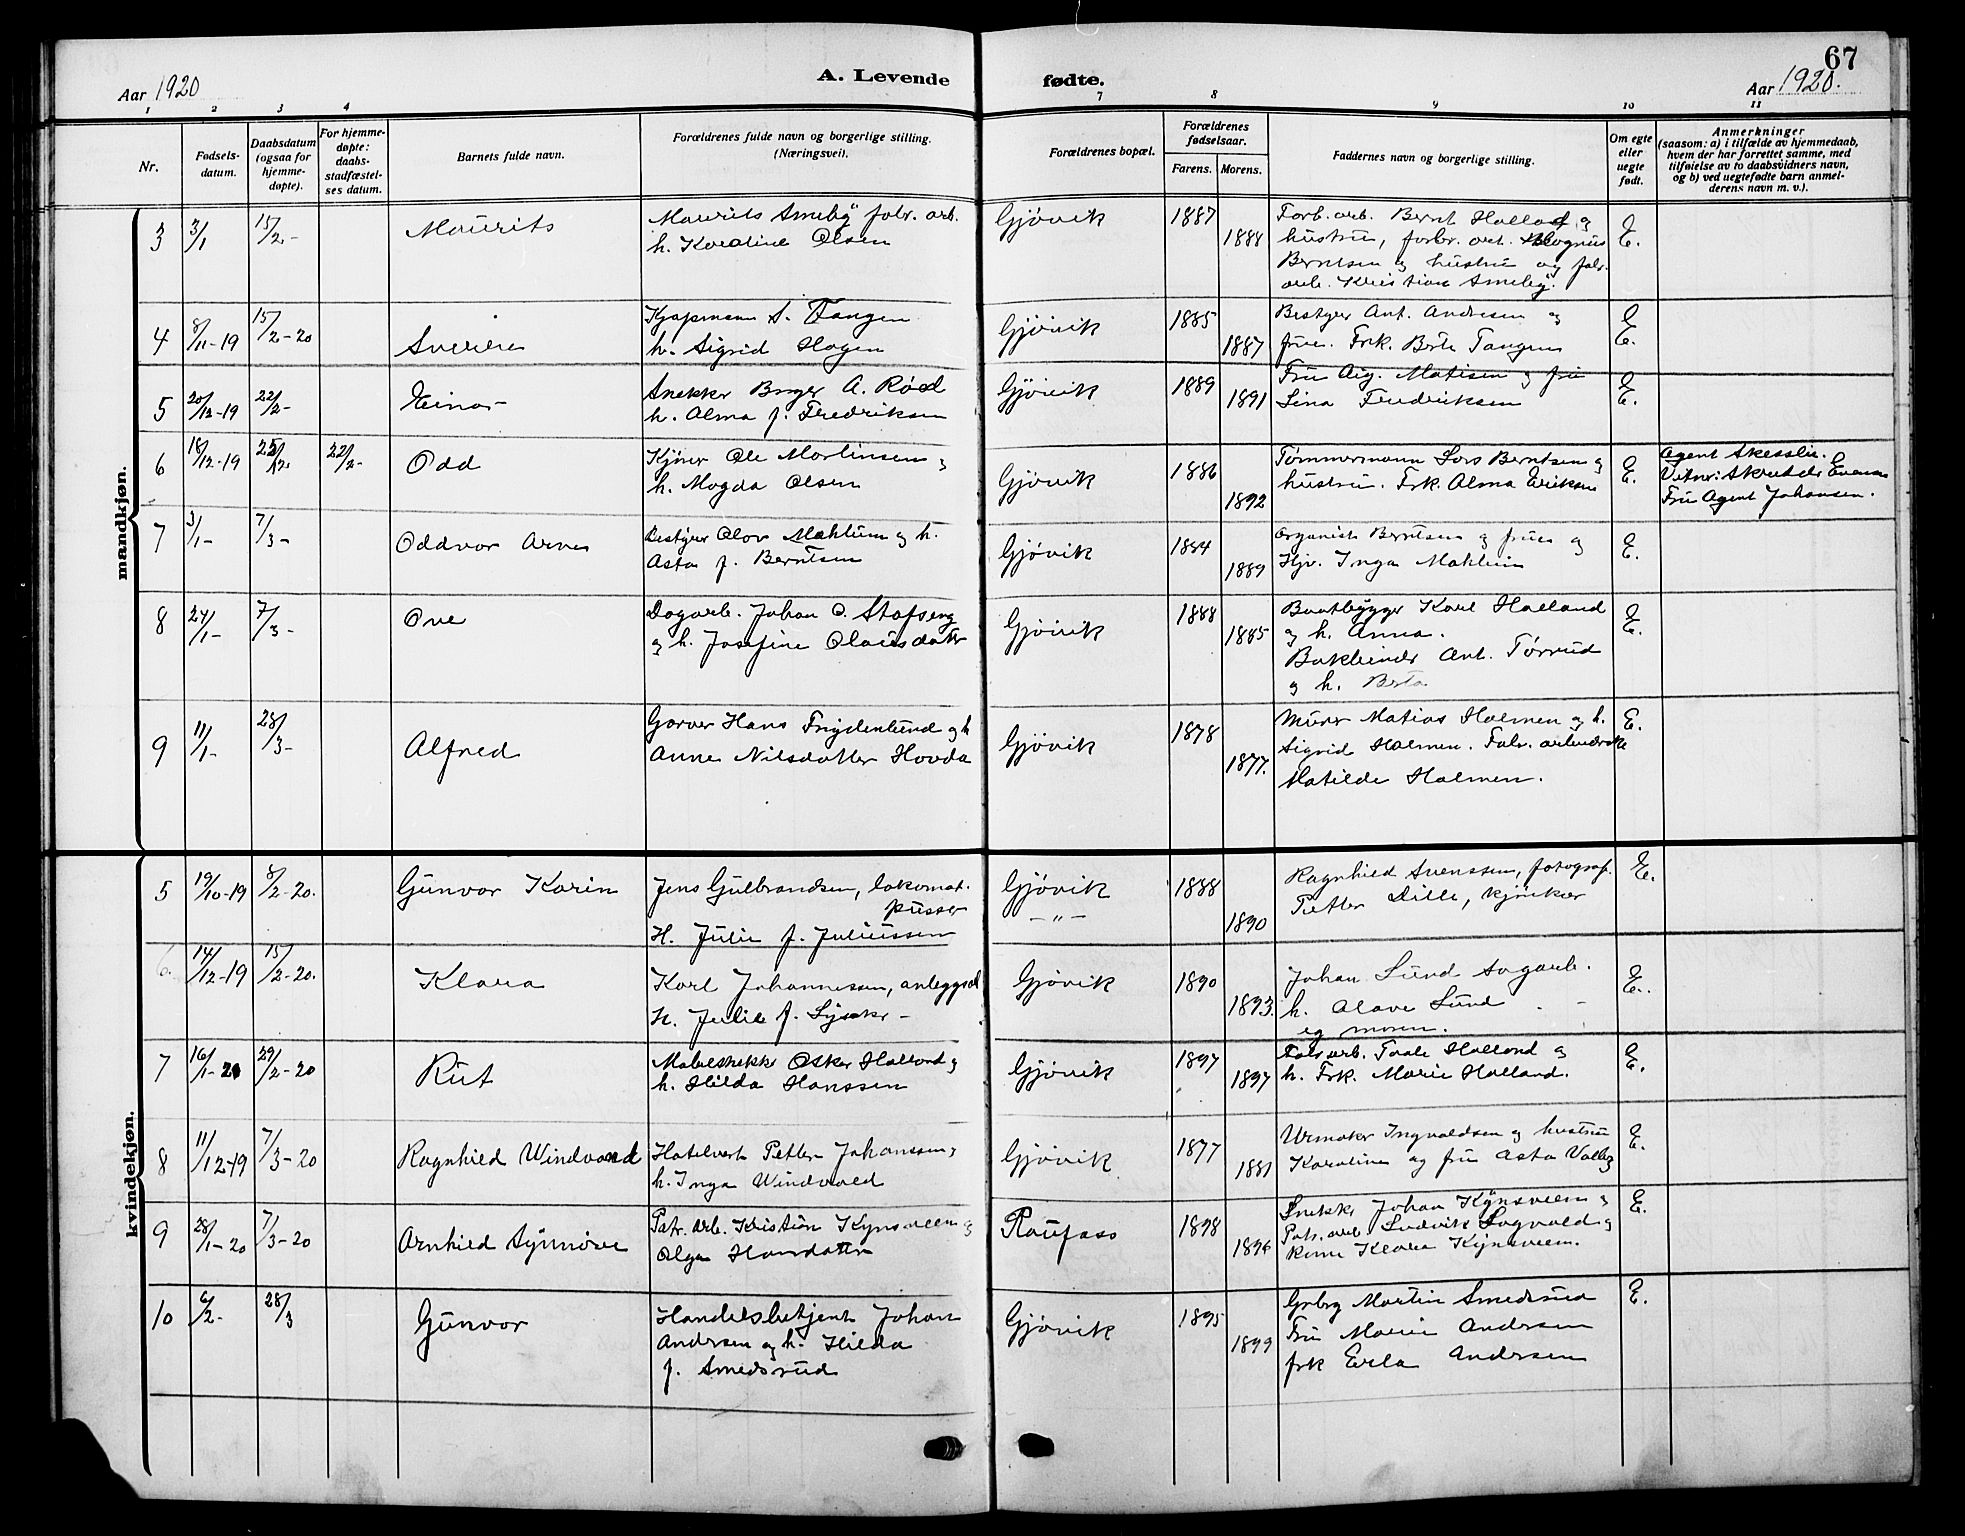 67
Aar 1920
A. Levende fødte.
Aar 1920.
1 2 3 4 7 8 9 10 11
Nr.
Fødsels-
datum.
Daabsdatum
(ogsaa for
hjemme-
døpte).
For hjemme-
døpte:
daabs-
stadfæstel-
ses datum.
Barnets fulde navn.
Forældrenes fulde navn og borgerlige stilling.
(Næringsvei).
Forældrenes bopæl.
Forældrenes
fødselsaar.
Farens. Morens.
Faddernes navn og borgerlige stilling.
Om egte
eller
uegte
født.
Anmerkninger
(saasom: a) i tilfælde av hjemmedaab,
hvem der har forrettet samme, med
tilføielse av to daabsvidners navn,
og b) ved uegtefødte barn anmel-
derens navn m. v.).
mandkjøn.
3 3/1 15/2 - Maurits
Maurits Smeby fabr. arb.
h. Karoline Olsen
Gjövik 1887 1888
Bernt
hustru, forbr. arb. Magnus
Berntsen og hustru og fabr.
arb. Kristian Smeby.
E.
4 8/11-19 15/2-20 Sverre
Kjøpmann S. Tangen
h. Sigrid Hagen
Gjövik 1885 1887
Bestyrer Ant. Andresen og
frue. Frk. Berta Tangen
E.
5 20/12-19 22/2- Einar
Snekker Birger A. Röed
h. Alma f. Fredriksen
Gjövik 1889 1891
Fru Aug. Matisen og fru
Lina Fredriksen
E.
6 18/12-19 22/2- Odd
Ole Martinsen og
h. Magda Olsen
Gjövik 1886 1892
Tømmermann Lars Berntsen og
hustru. Frk. Alma Eriksen
E.
Agent
Vitner: Skredder Evensen
Fru Agent Johansen.
7 3/1- 7/3- Oddvar Arne
Bestyrer Olav Mæhlum og h.
Asta f. Berntsen
Gjövik 1884 1889
Organist Berntsen og frue og
Inga Mæhlum
E.
8 24/1- 7/3- Ove
Dagarb. Johan O. Stafseng
og h. Josefine Olausdatter
Gjövik 1888 1885
Baatbygger Karl Haaland
og h. Anna.
Bokbinder Ant. Törrud
og h. Berta
E.
9 11/1- 28/3- Alfred
Garver Hans Frydenlund og h
Anne Nilsdatter Hovda
Gjövik 1878 1877.
Murer Matias Holmen og h.
Sigrid Holmen. Fabr. arbeiderske
Matilde Holmen.
E.
kvindekjøn.
5 19/10-19 8/2-20. Gunvor Karin
Jens Gulbrandsen, lokomot.
pusser
H. Julie f. Juliussen
Gjövik
- " -
1888 1890
Ragnhild Svenssen, fotograf.
Petter Lille,
E.
6. 14/12-19 15/2-20. Klara
Karl Johannessen,
H. Julie f.
Gjövik 1890 1893.
Johan Lund Sagarb.
h. Olave Lund
og moren.
E.
7 16/1-20 29/2-20 Rut
Møbelsnekker Oskar Halland og
h. Hilda Hanssen
Gjövik 1897 1897
Halland og
h. Frk. Marie Halland.
E.
8 11/12-19 7/3-20 Ragnhild Windvold
Hotelvert Petter Johanssen og
h. Inga Windvold
Gjövik 1877 1881
Urmaker Ingvaldsen og hustru
Karoline og fru Asta
E.
9 28/1-20 7/3-20 Arnhild Synnöve
Patr. arb. Kristian Kynsveen og
Olga Hansdatter
Raufoss 1898 1896
Snekker Johan Kynsveen og
Patr. arb. Ludvik Sogvold og
Klara Kynsveen.
E.
10 6/2- 28/3 Gunvor
Handelsbetjent Johan
Andersen og h. Hilda
f. Smedsrud
Gjövik 1895 1899
Martin Smedsrud
Fru Marie Andersen
frk Erla Andersen
E.